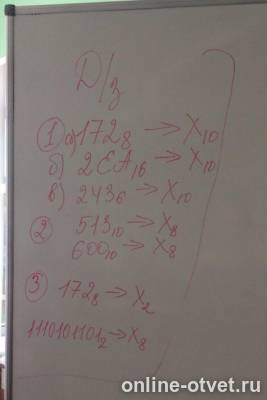 Д/з
① а) 172₈ → X₁₀
б) 2EA₁₆ → X₁₀
в) 243₆ → X₁₀
② 513₁₀ → X₈
600₁₀ → X₈
③ 172₈ → X₂
1110101101₂ → X₈
online-otvet.ru